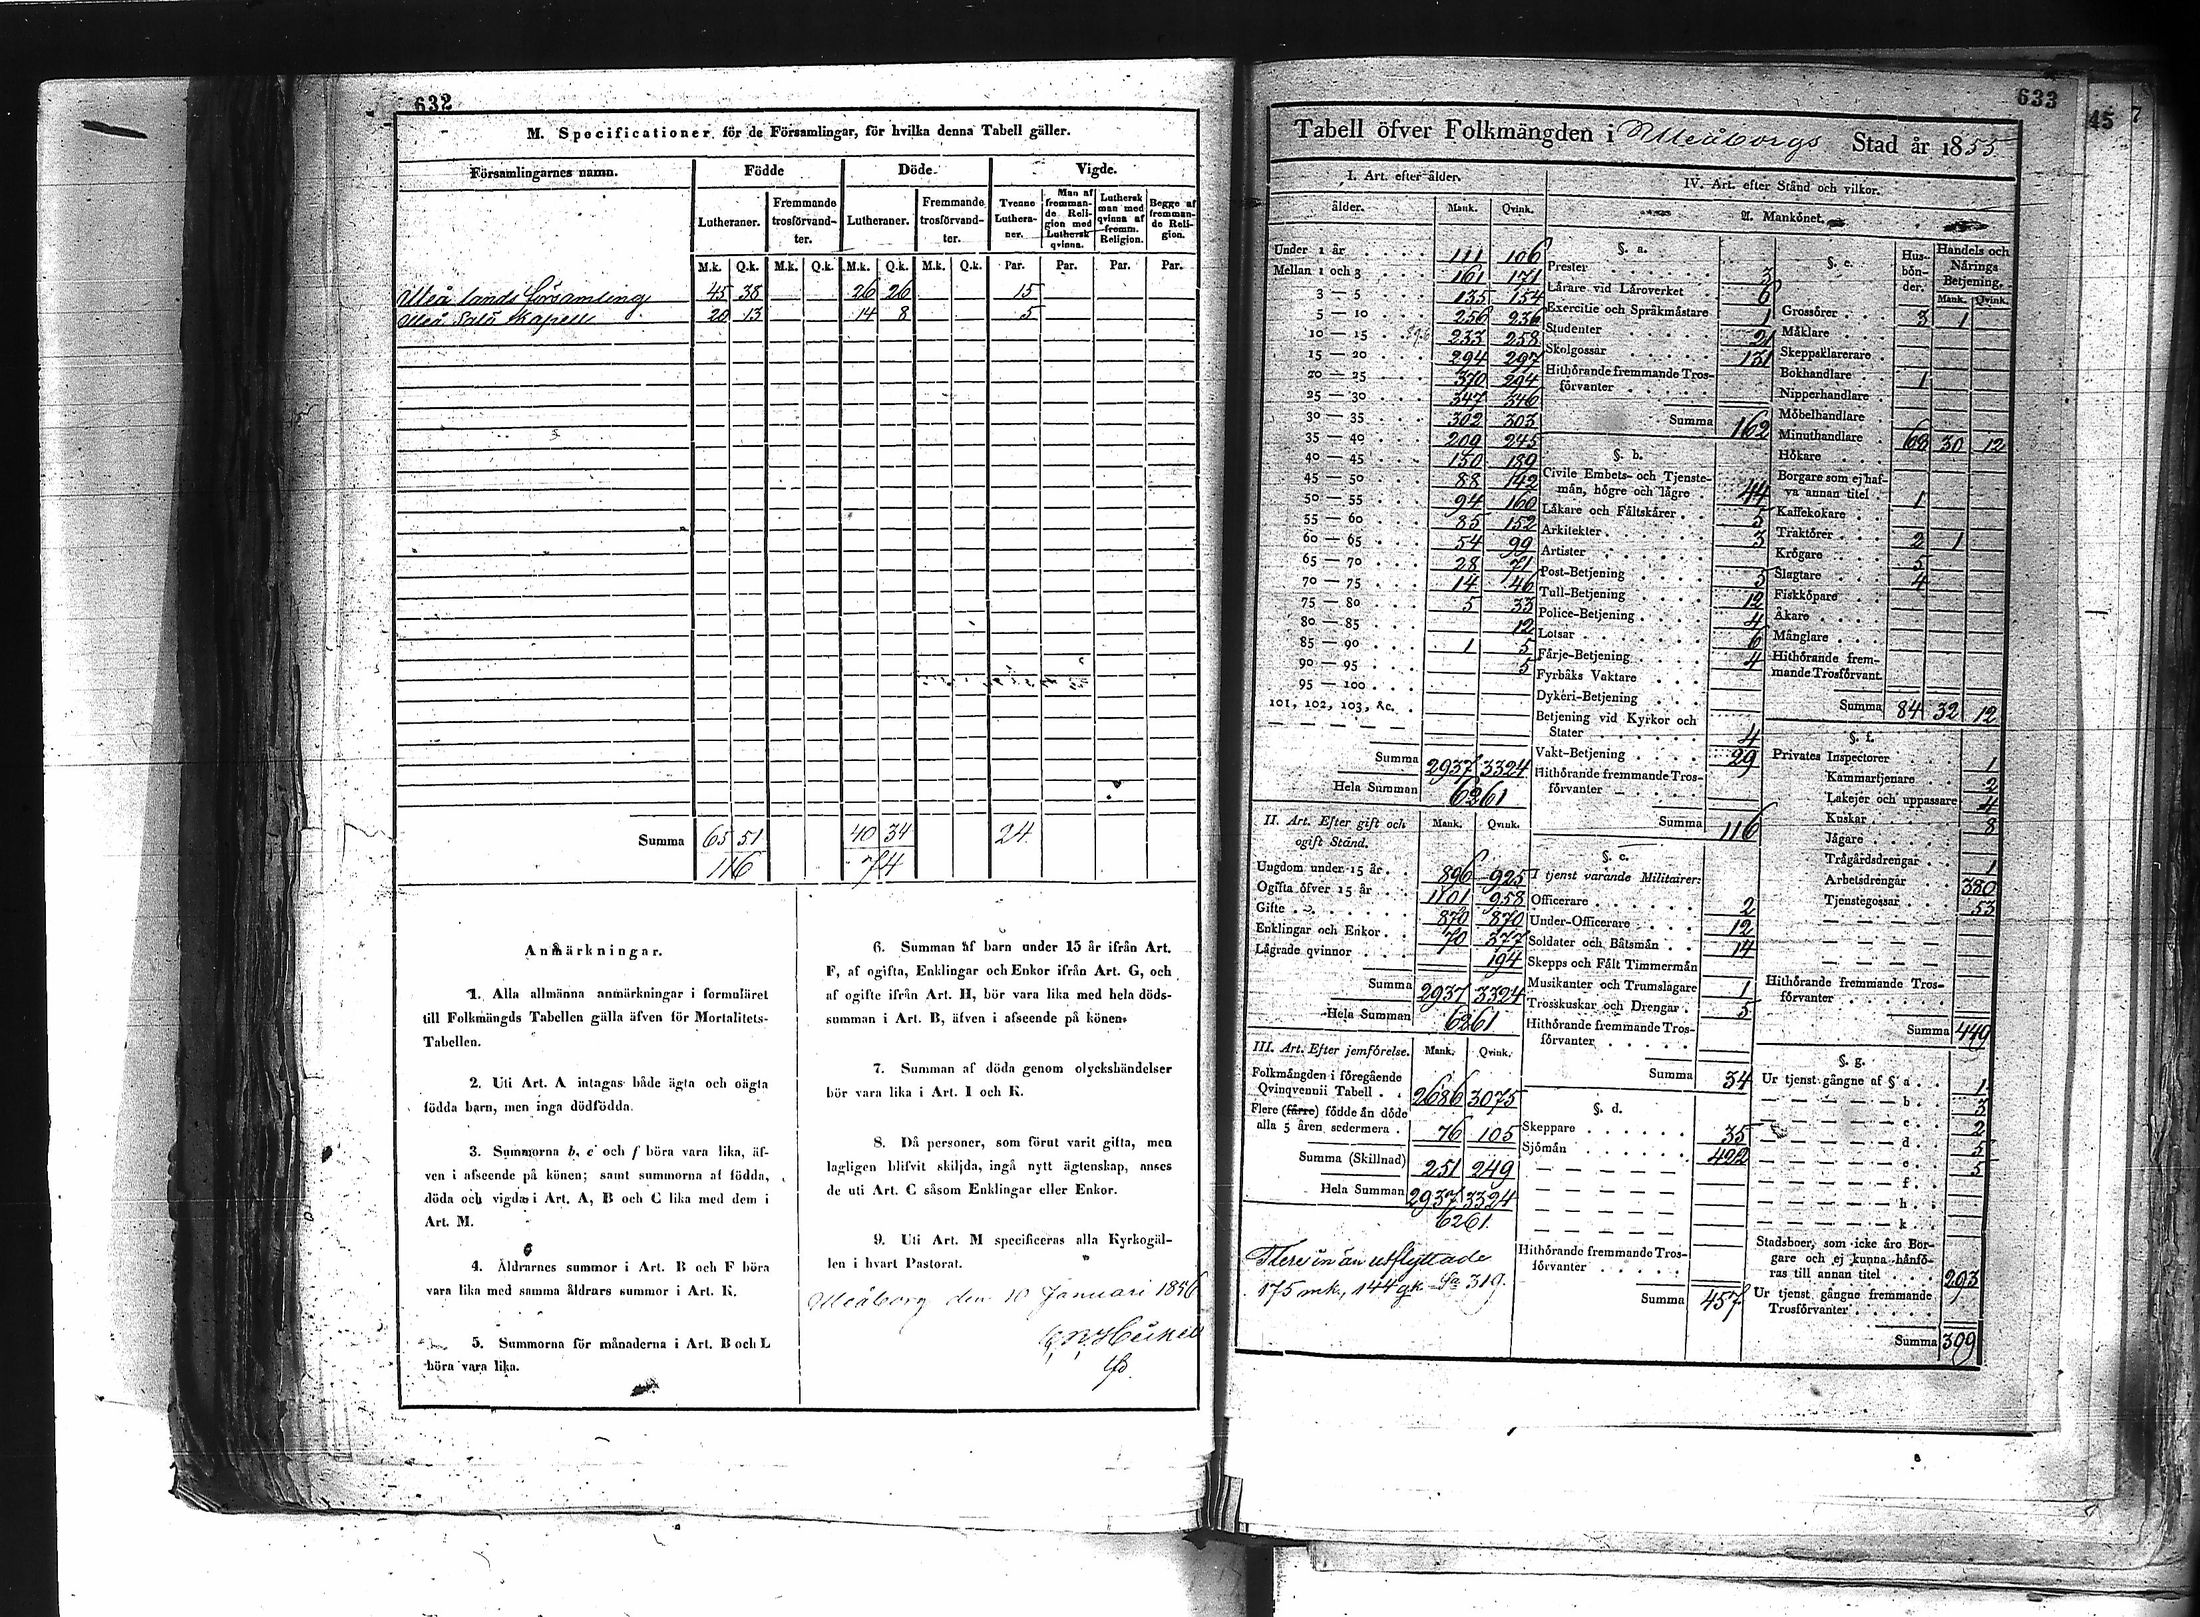 632
M. Specificationer för de Församlingar, för hvilka denna Tabell gäller.
Församlingarnes namn.
Födde
Döde.
Vigde.
Lutheraner.
Fremmande trosförvandter.
Lutheraner.
Fremmande trosförvandter.
Tvenne Lutheraner.
Man af fremmande Religion med Luthersk qvinna.
Luthersk man med qvinna af fremm. Religion.
Begge af fremmande Religion.
M.k. Q.k. M.k. Q.k. M.k. Q.k. M.k. Q.k. Par. Par. Par. Par.
Uleå lands församling 45 38 26 26 15
Uleå Salo Kapell 20 13 14 8 5
Summa 65 51 40 34 24
116 74
Anmärkningar.
1. Alla allmänna anmärkningar i formuläret
till Folkmängds Tabellen gälla äfven för Mortalitets-
Tabellen.
2. Uti Art. A intagas både ägta och oägta
födda barn, men inga dödfödda.
3. Summorna b, e och f böra vara lika, äf-
ven i afseende på könen; samt summorna af födda,
döda och vigda i Art. A, B och C lika med dem i
Art. M.
4. Åldrarnes summor i Art. B och F böra
vara lika med samma åldrars summor i Art. K.
5. Summorna för månaderna i Art. B och L
böra vara lika.
6. Summan af barn under 15 år ifrån Art.
F, af ogifta, Enklingar och Enkor ifrån Art. G, och
af ogifte ifrån Art. H, bör vara lika med hela döds-
summan i Art. B, äfven i afseende på könen.
7. Summan af döda genom olyckshändelser
bör vara lika i Art. I och K.
8. Då personer, som förut varit gifta, men
lagligen blifvit skiljda, ingå nytt ägtenskap, anses
de uti Art. C såsom Enklingar eller Enkor.
9. Uti Art. M specificeras alla Kyrkogäl-
len i hvart Pastorat.
Uleåborg den 10 Januari 1856
633
45
7
Tabell öfver Folkmängden i Uleåborgs Stad år 1855
I. Art. efter ålder.
ålder. Mank. Qvink.
Under 1 år 111 106
Mellan 1 och 3 161 171
3 — 5 135 154
5 — 10 256 236
10 — 15 233 258
15 — 20 294 297
20 — 25 370 294
25 — 30 347 346
30 — 35 302 303
35 — 40 209 245
40 — 45 150 189
45 — 50 88 142
50 — 55 94 160
55 — 60 85 152
60 — 65 54 99
65 — 70 28 71
70 — 75 14 46
75 — 80 5 33
80 — 85 12
85 — 90 1 5
90 — 95 5
95 — 100
101, 102, 103, &c.
Summa 2937 3324
Hela Summan 6261
II. Art. Efter gift och ogift Stånd. Mank. Qvink.
Ungdom under 15 år 896 925
Ogifta öfver 15 år 1101 958
Gifte 870 870
Enklingar och Enkor 70 377
Lägrade qvinnor 194
Summa 2937 3324
Hela Summan 6261
III. Art. Efter jemförelse. Mank. Qvink.
Folkmängden i föregående
Qvinqvennii Tabell 2686 3075
Flere (färre) födde än döde
alla 5 åren sedermera 76 105
Summa (Skillnad) 251 249
Hela Summan 2937 3324
6261
Flere in än utflyttade
175 mk., 144 qk. Sa 319.
IV. Art. efter Stånd och vilkor.
A. Mankönet.
§. a.
Prester 3
Lärare vid Läroverket 6
Exercitie och Språkmästare 1
Studenter 21
Skolgossar 131
Hithörande fremmande Tros-
förvanter
Summa 162
§. b.
Civile Embets- och Tjenste-
män, högre och lägre 44
Läkare och Fältskärer 5
Arkitekter 3
Artister
Post-Betjening 5
Tull-Betjening 12
Police-Betjening 4
Lotsar 6
Färje-Betjening 4
Fyrbåks Vaktare
Dykeri-Betjening
Betjening vid Kyrkor och
Stater 4
Vakt-Betjening 29
Hithörande fremmande Tros-
förvanter
Summa 116
§. c.
I tjenst varande Militairer:
Officerare 2
Under-Officerare 12
Soldater och Båtsmän 14
Skepps och Fält Timmermän
Musikanter och Trumslagare 1
Trosskuskar och Drengar 5
Hithörande fremmande Tros-
förvanter
Summa 34
§. d.
Skeppare 35
Sjömän 422
Hithörande fremmande Tros-
förvanter
Summa 457
§. e. Husbönder. Handels och Närings Betjening.
Mank. Qvink.
Grossörer 3 1
Mäklare
Skeppsklarerare
Bokhandlare 1
Nipperhandlare
Möbelhandlare
Minuthandlare 68 30 12
Hökare
Borgare som ej haf-
va annan titel 1
Kaffekokare
Traktörer 2 1
Krögare 5
Slagtare 4
Fiskköpare
Åkare
Månglare
Hithörande frem-
mande Trosförvant.
Summa 84 32 12
§. f.
Privates Inspectorer 1
Kammartjenare 2
Lakejer och uppassare 4
Kuskar 8
Jägare
Trägårdsdrengar 1
Arbetsdrengar 380
Tjenstegossar 53
Hithörande fremmande Tros-
förvanter
Summa 449
§. g.
Ur tjenst gångne af § a 1
b 3
c 2
d 5
e 5
f
h
k
Stadsboer, som icke äro Bor-
gare och ej kunna hänfö-
ras till annan titel 293
Ur tjenst gångne fremmande
Trosförvanter
Summa 309